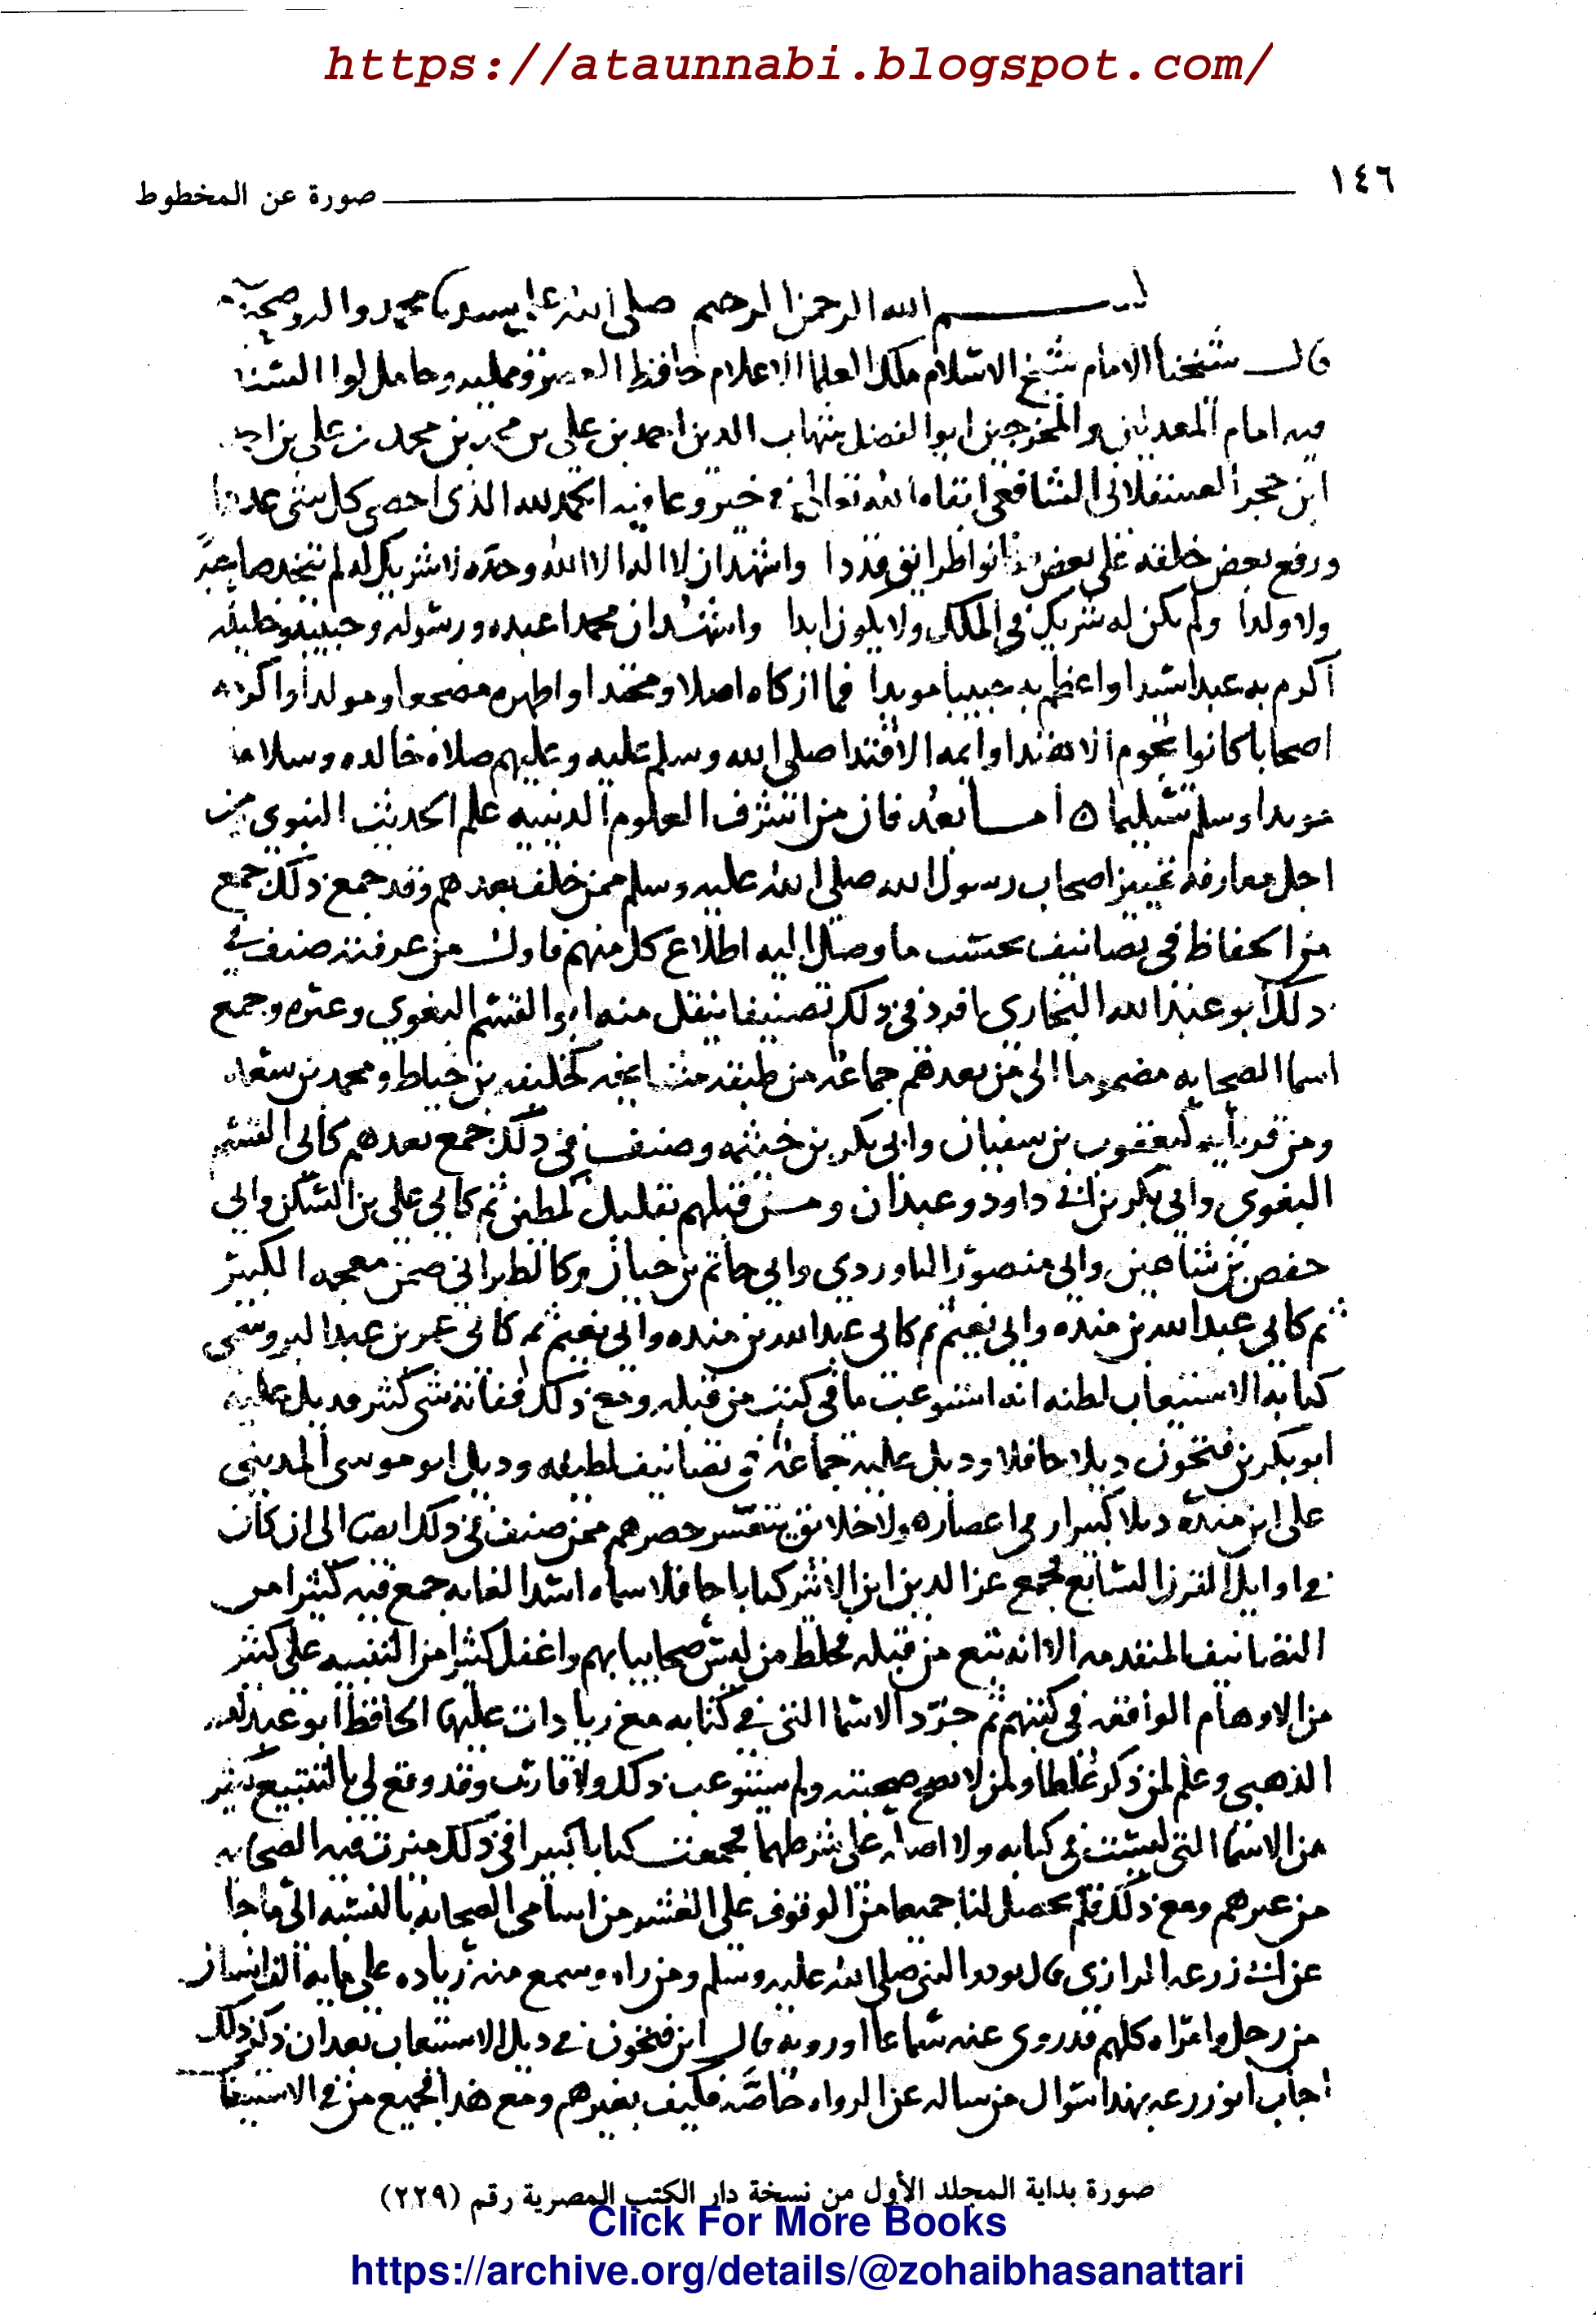 https://ataunnabi.blogspot.com/
١٤٦ صورة عن المخطوط
بسم الله الرحمن الرحيم صلى الله على سيدنا محمد واله وصحبه
قال شيخنا الامام شيخ الاسلام ملك العلما الاعلام حافظ العصر وممليه وحامل لوا السنه
فيه امام المعدلين والمخرجين ابو الفضل شهاب الدين احمد بن على بن محمد بن محمد بن على بن احمد
ابن حجر العسقلانى الشافعى ابقاه الله تعالى فى خير وعافيه الحمد لله الذى احصى كل شى عددا
ورفع بعض خلقه على بعض فكانوا طرايق قددا واشهد ان لا اله الا الله وحده لا شريك له لم يتخذ صاحبة
ولا ولدا ولم يكن له شريك فى الملك ولا يكون ابدا واشهد ان محمدا عبده ورسوله وحبيبه وخليله
اكرم به عبدا سيدا واعظم به حبيبا مويدا فما ازكاه اصلا ومحتدا واطهره مضجعا ومولدا واكرمه
اصحابا كانوا نجوم الاهتدا وايمه الاقتدا صلى الله وسلم عليه وعليهم صلاة خالده وسلاما
مويدا وسلم تسليما ه اما بعد فان من اشرف العلوم الدينيه علم الحديث النبوي ومن
اجل معارفه تمييز اصحاب رسول الله صلى الله عليه وسلم ممن خلف بعدهم وقد جمع ذلك جمع
من الحفاظ فى تصانيف بحسب ما وصل اليه اطلاع كل منهم فاول من عرفته صنف في
ذلك ابو عبد الله البخاري افرد في ذلك تصنيفا ينقل منه ابو القسم البغوي وغيره وجمع
اسما الصحابه مضموما الى من بعدهم جماعة من طبقه مشايخه كخليفه بن خياط ومحمد بن سعد
ومن قرنايه كيعقوب بن سفيان وابى بكر بن خيثمه وصنف في ذلك جمع بعدهم كابى القسم
البغوي وابي بكر بن ابي داود وعبدان ومن قبلهم بقليل كمطين ثم كابي على بن السكن وابي
حفص بن شاهين وابي منصور الماوردي وابي حاتم بن حبان وكالطبراني ضمن معجمه الكبير
ثم كابي عبد الله بن منده وابي نعيم ثم كابي عبد الله بن منده وابي نعيم ثم كابي عمر بن عبد البر وسمى
كتابه الاستيعاب لظنه انه استوعب ما في كتب من قبله ومع ذلك ففاته شى كثير فذيل عليه
ابو بكر بن فتحون ذيلا حافلا وذيل عليه جماعة في تصانيف لطيفه وذيل ابو موسى المديني
على ابن منده ذيلا كبيرا وفى اعصار هولا خلايق يتعسر حصرهم ممن صنف في ذلك ايضا الى ان كان
في اوايل القرن السابع فجمع عز الدين ابن الاثير كتابا حافلا سماه اسد الغابه جمع فيه كثيرا من
التصانيف المتقدمه الا انه تبع من قبله فخلط من ليس صحابيا بهم واغفل كثيرا من التنبيه على كثير
من الاوهام الواقعه في كتبهم ثم جرد الاسما التى في كتابه مع زيادات عليها الحافظ ابو عبد الله
الذهبى وعلم لمن ذكر غلطا ولمن لا تصح صحبته ولم يستوعب ذلك ولا قارب وقد وقع لي بالتتبع كثير
من الاسما التى ليست في كتابه ولا اصله على شرطهما فجمعت كتابا كبيرا في ذلك ميزت فيه الصحابه
من غيرهم ومع ذلك فلم يحصل لنا جميعا من الوقوف على العشر من اسامى الصحابه بالنسبه الى ما جا
عن ابي زرعه الرازي قال توفى النبى صلى الله عليه وسلم ومن راه وسمع منه زياده على مايه الف انسان
من رجل وامراه كلهم قد روى عنه سماعا او رويه قال ابن فتحون في ذيل الاستيعاب بعد ان ذكر ذلك
اجاب ابو زرعه بهذا سوال من ساله عن الرواه خاصة فكيف بغيرهم ومع هذا فجميع من في الاستيعاب
صورة بداية المجلد الأول من نسخة دار الكتب المصرية رقم (٢٢٩)
Click For More Books
https://archive.org/details/@zohaibhasanattari